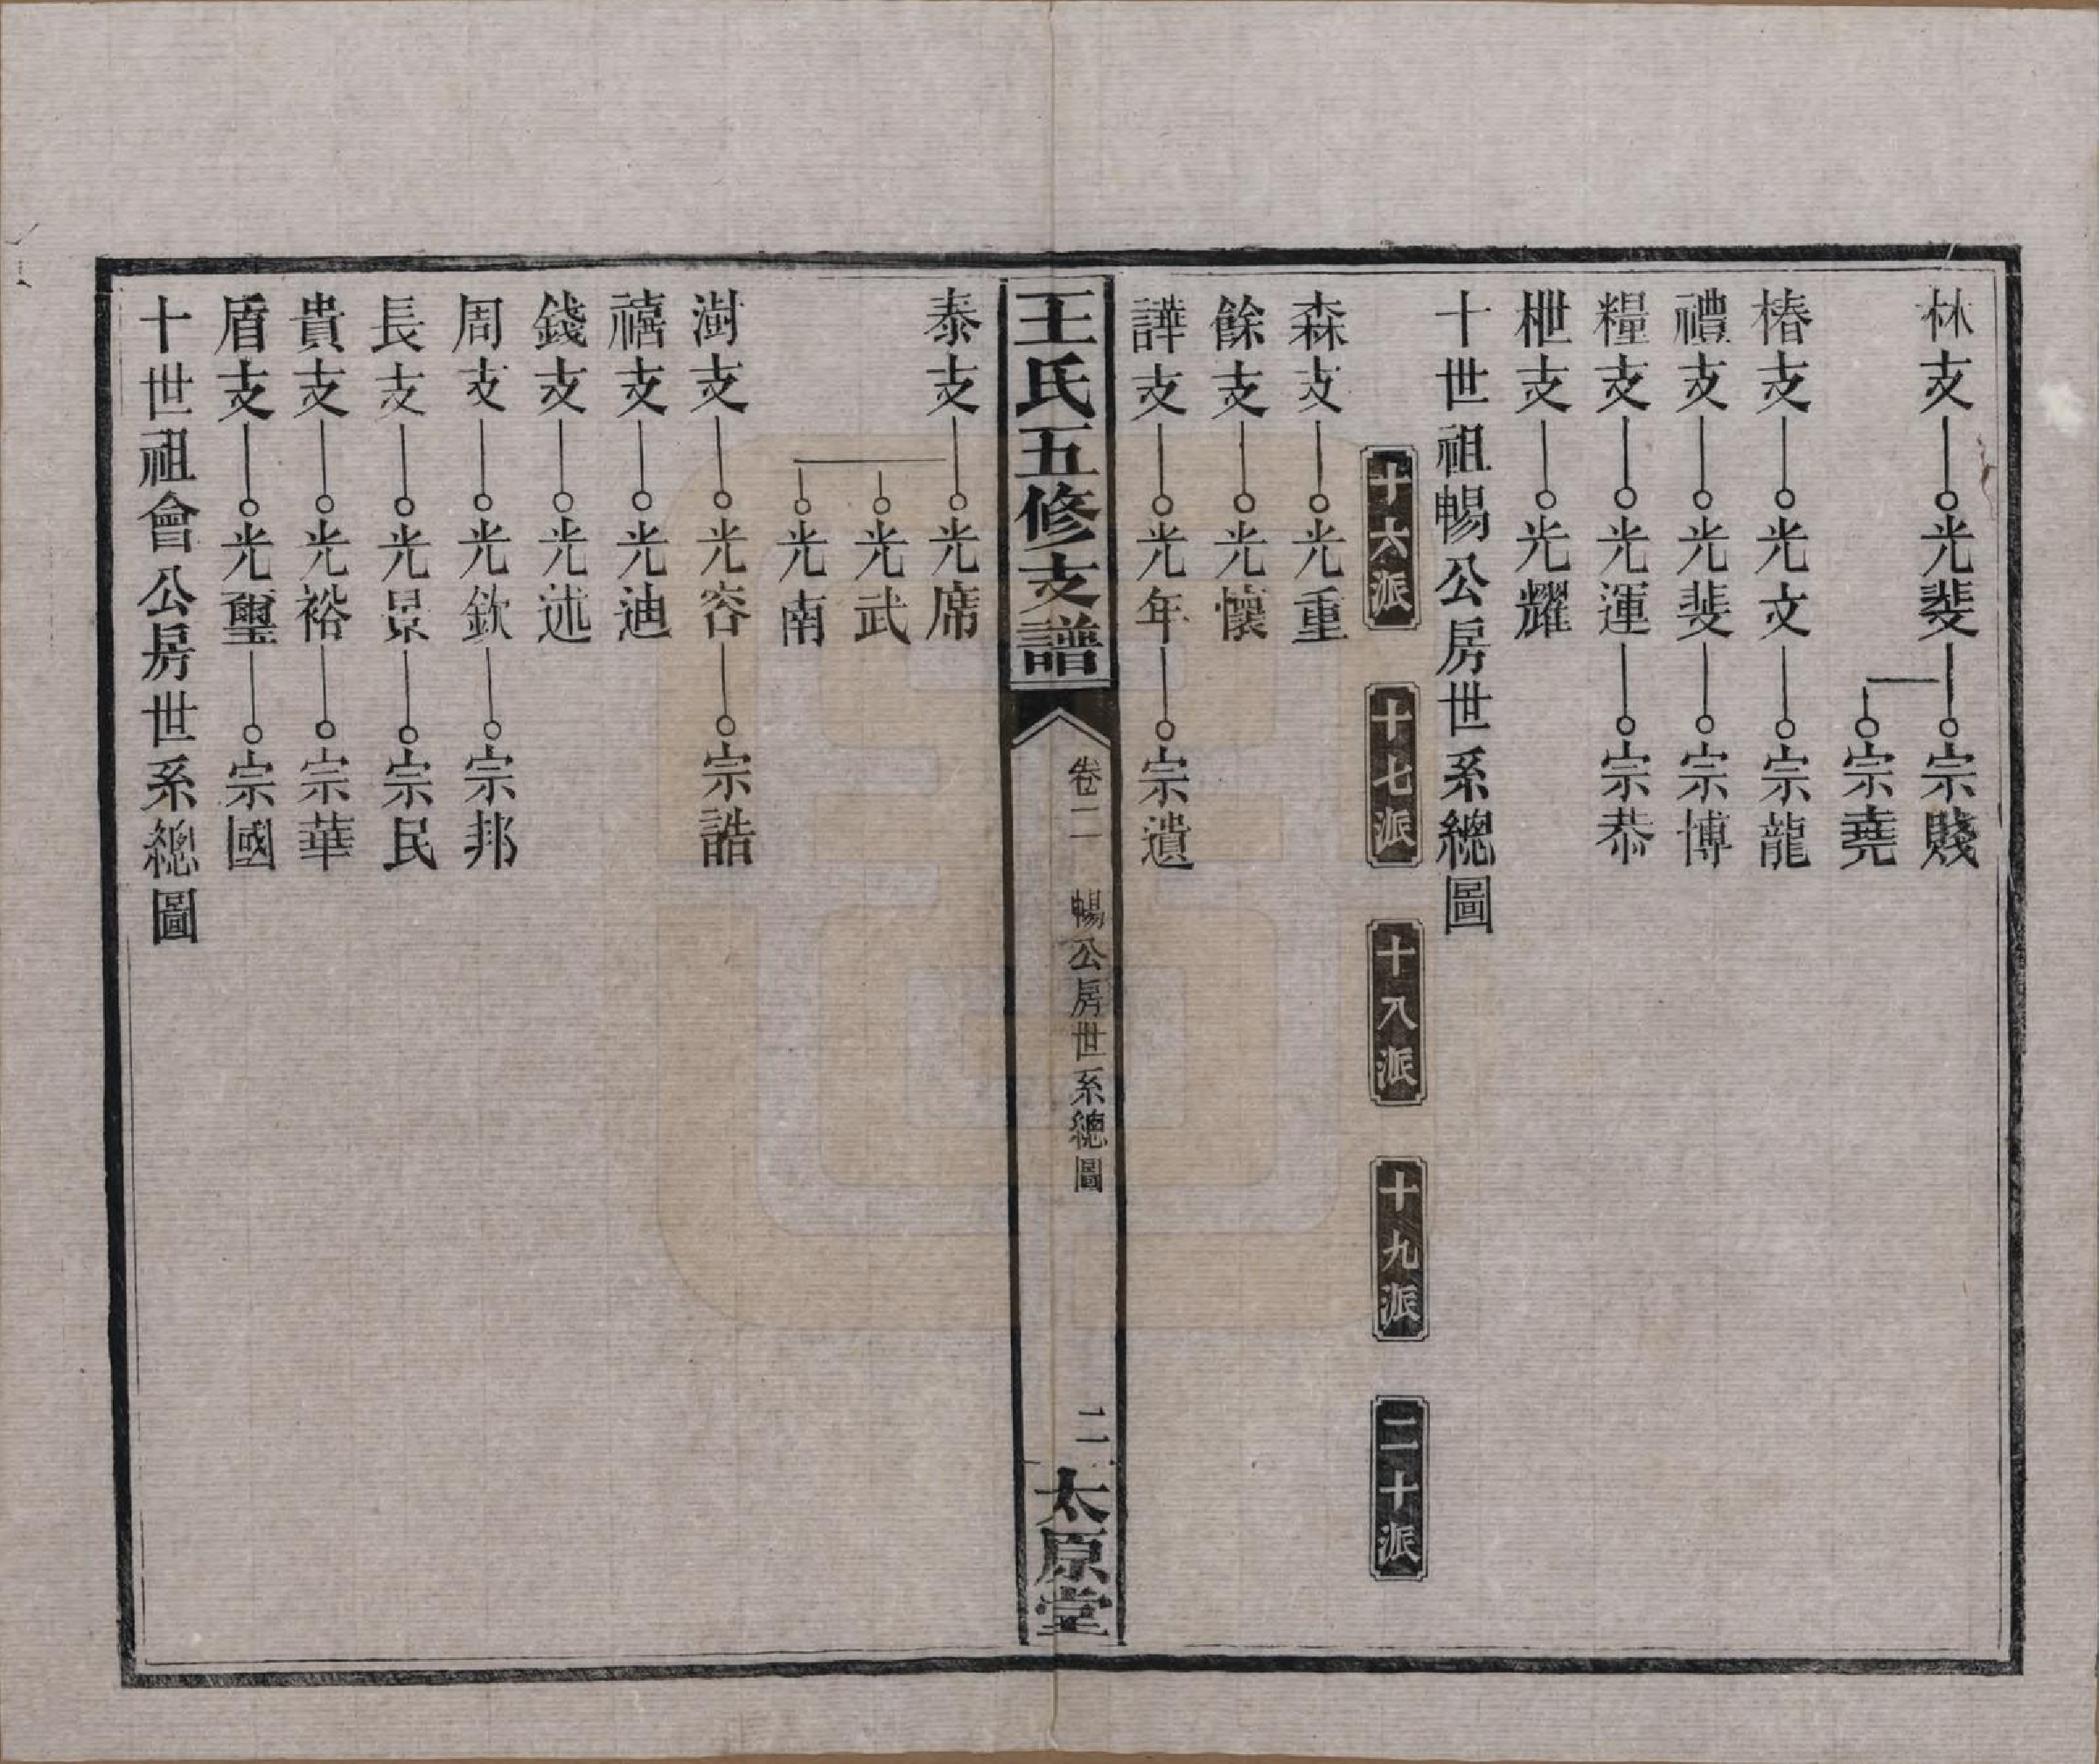 林支 光斐 宗賤
宗堯
椿支 光文 宗龍
禮支 光斐 宗博
糧支 光運 宗恭
枻支 光耀
十世祖暢公房世系總圖
十六派 十七派 十八派 十九派 二十派
森支 光重
餘支 光懷
譁支 光年 宗遺
王氏五修支譜 卷二 暢公房世系總圖 二 太原堂
泰支 光席
光武
光南
澍支 光容 宗誥
禧支 光迪
錢支 光述
周支 光欽 宗邦
長支 光景 宗民
貴支 光裕 宗華
盾支 光璽 宗國
十世祖會公房世系總圖